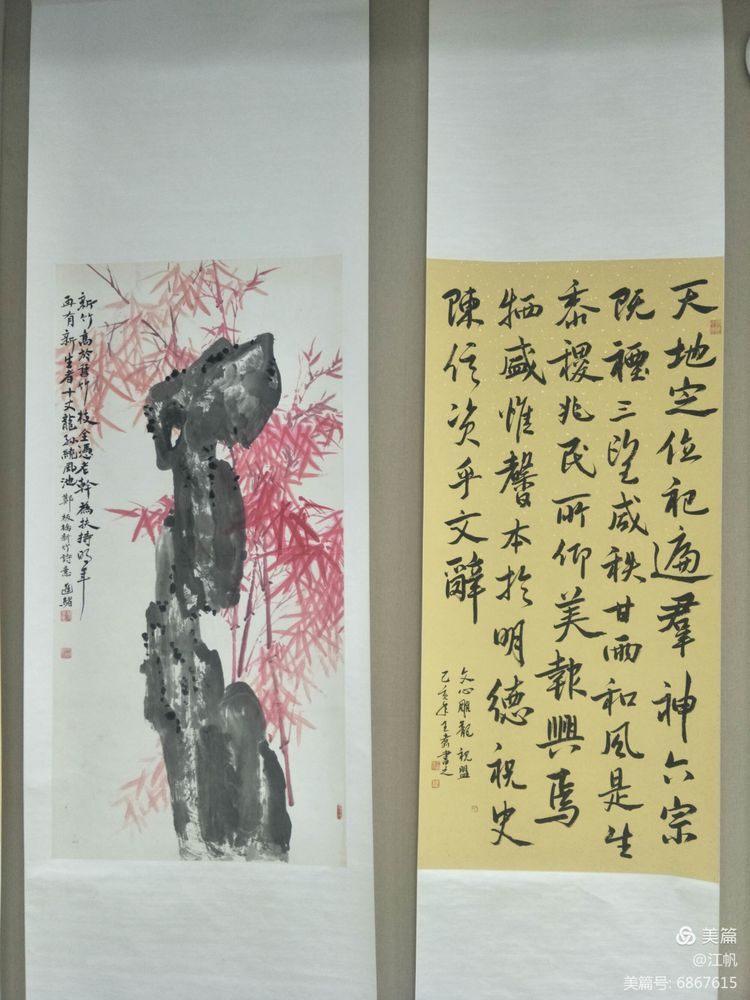 新竹高於舊竹枝全憑老幹為扶持明年
再有新生者十丈龍孫繞鳳池 鄭板橋新竹詩意
天地定位祀遍羣神六宗
既禋三望咸秩甘雨和風是生
黍稷兆民所仰美報興焉
牺盛惟馨本於明德祝史
陳信資乎文辭
文心雕龍祝盟
己亥年王書之
美篇
@江帆
美篇号: 6867615